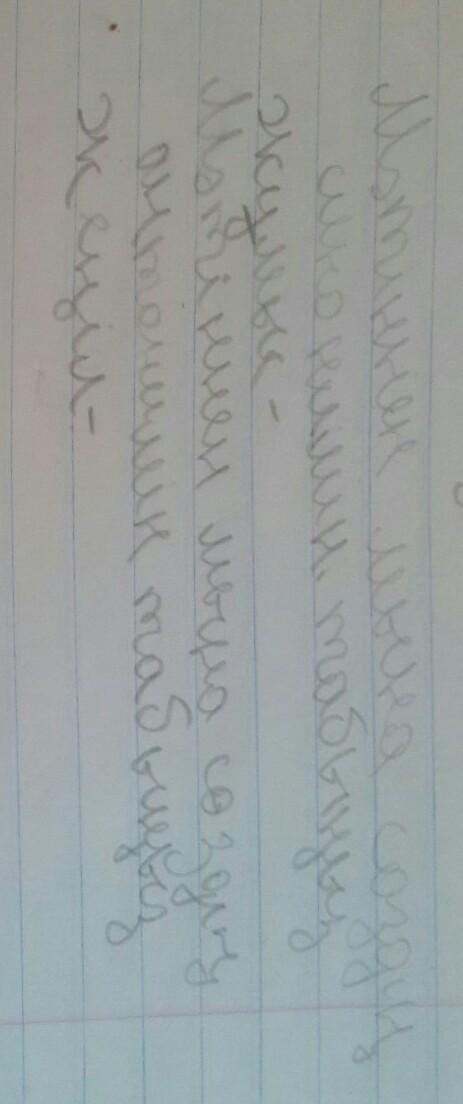 Мәтиннен мына создің
синонимин табыңыз
Жұмыс -
Мәтіннен мына сөздің
антонимін табыңыз
Жеңіл -